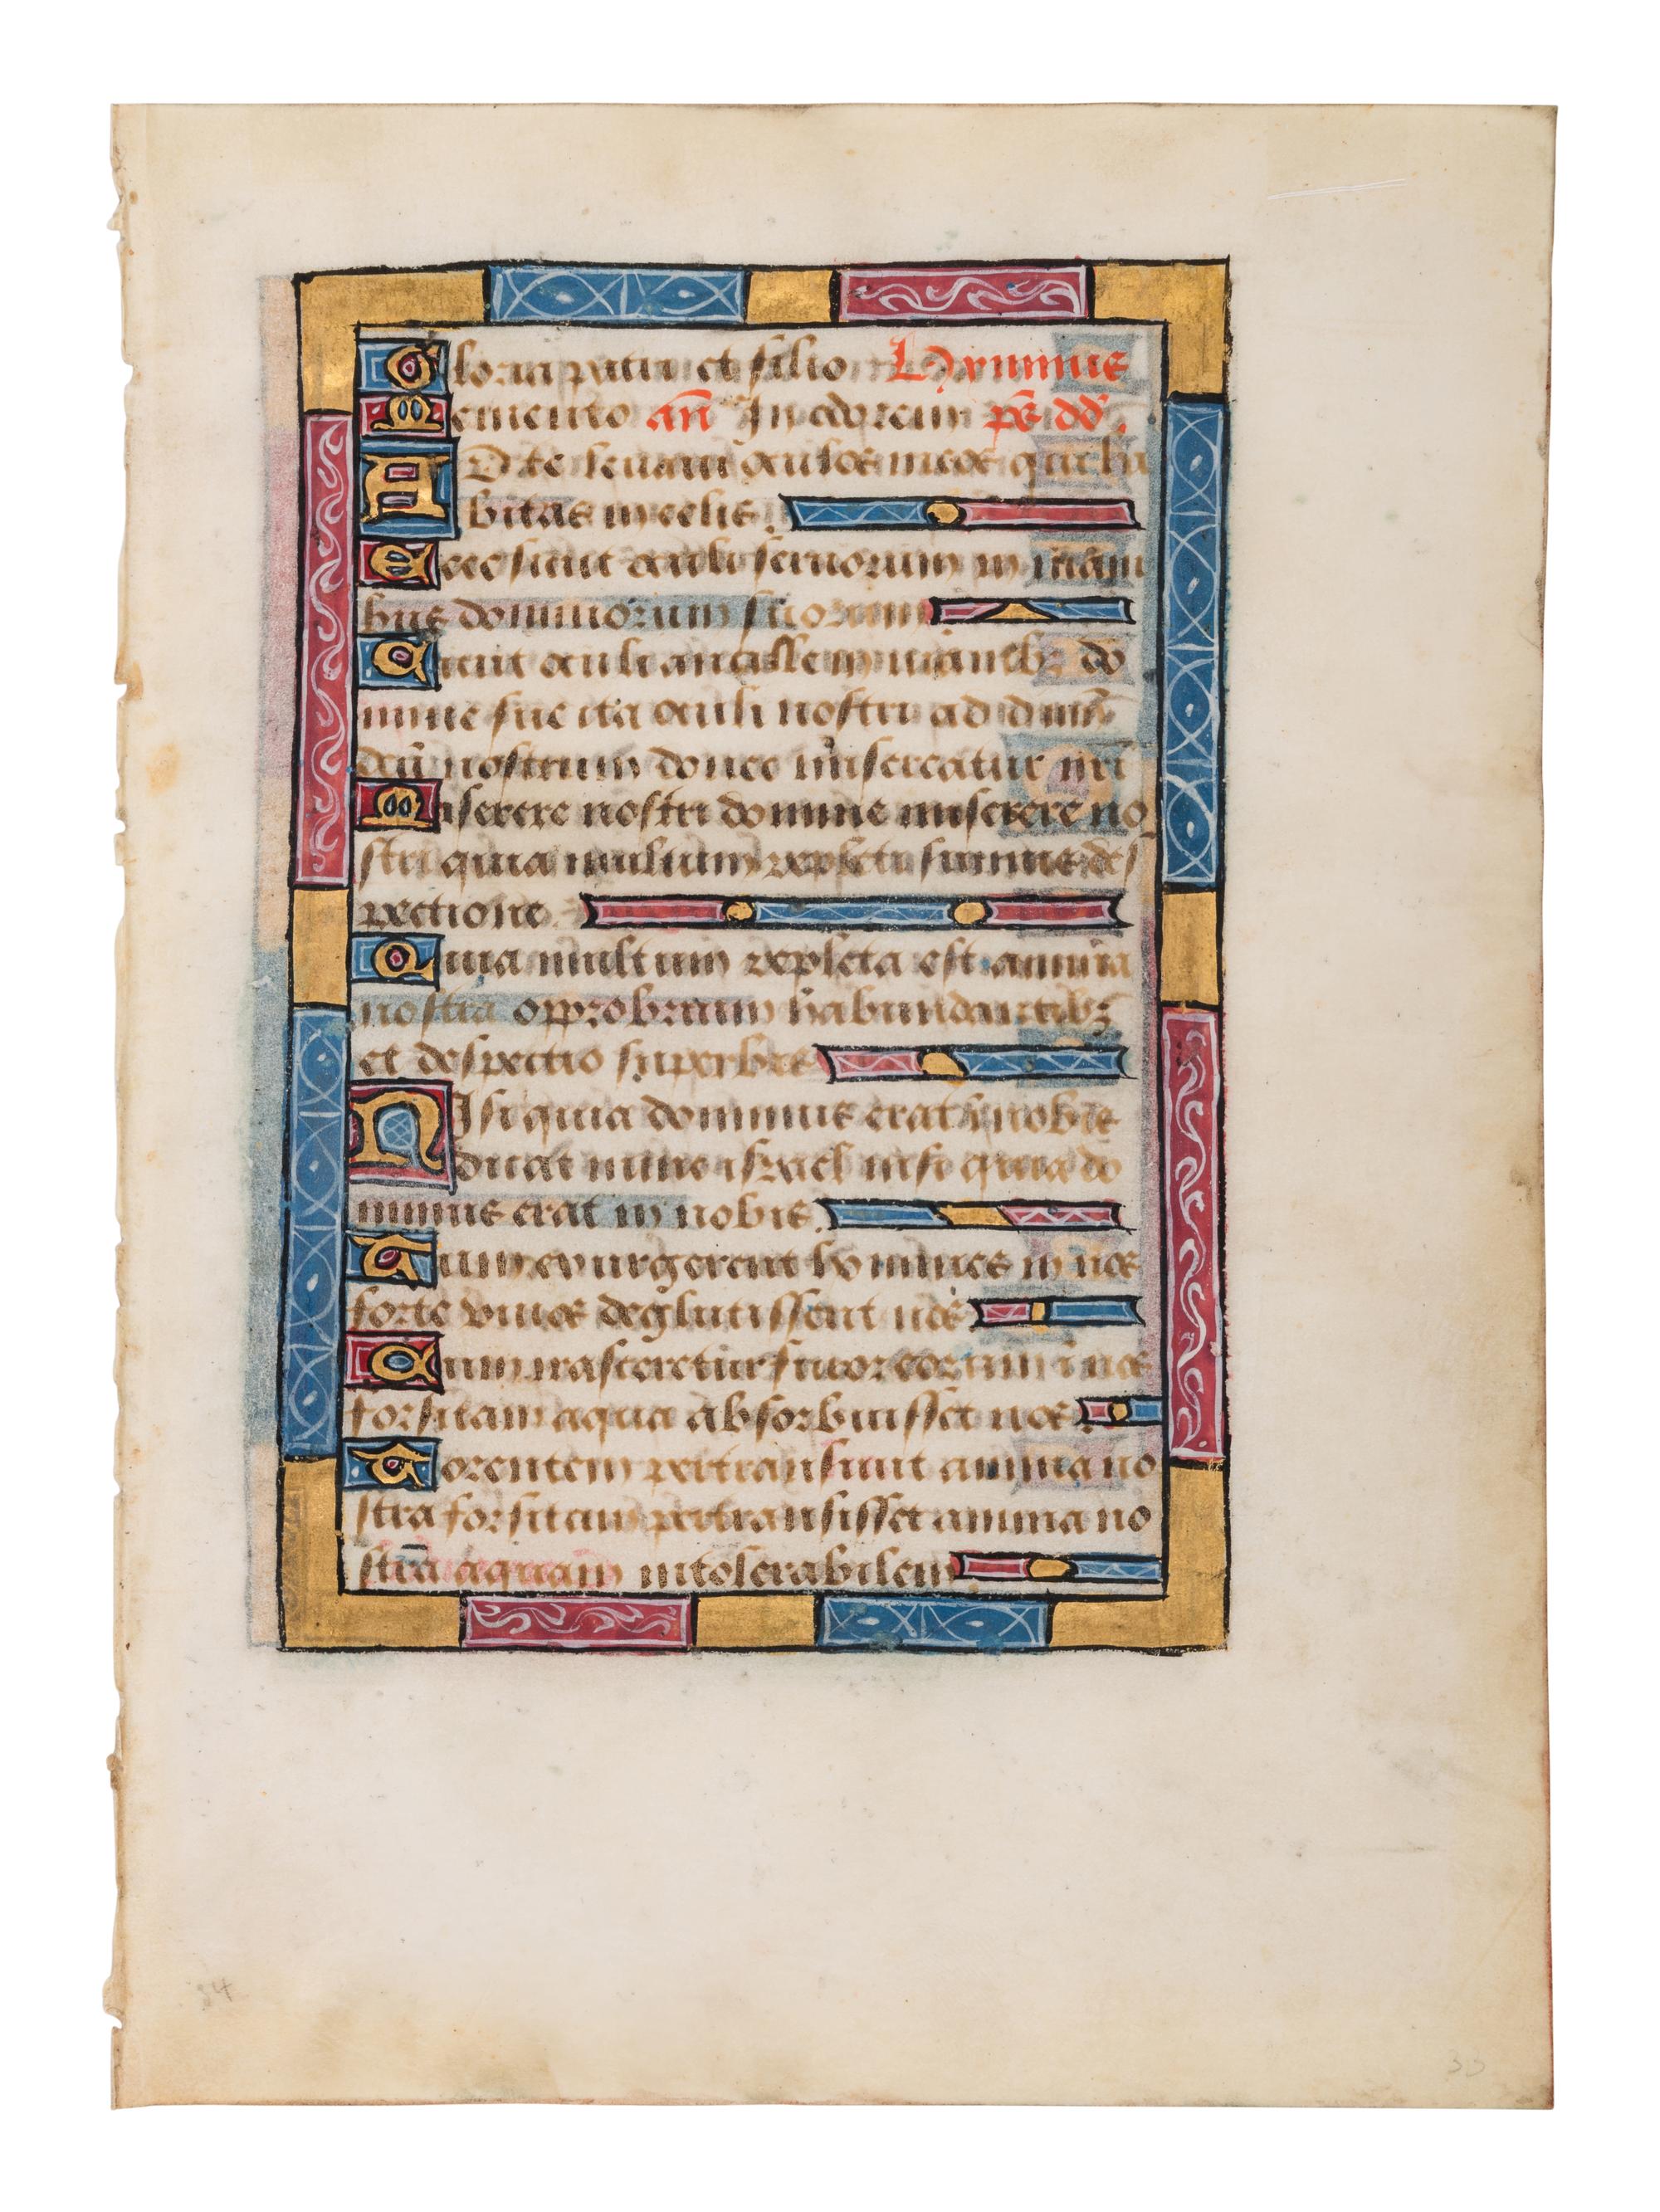 Gloria patri et filio Hymnus
Memento añ In odorem ps̄ dd̄.
AD te levavi oculos meos qui ha
bitas in celis
Ecce sicut oculi servorum in mani
bus dominorum suorum
Sicut oculi ancille in manibꝫ do
mine sue ita oculi nostri ad dnm̄
deū nostrum donec misereatur nr̄i
Miserere nostri domine miserere no
stri quia multum repleti sumus des
pectione
Quia multum repleta est anima
nostra opprobrium habundantibꝫ
et despectio superbis
NIsi quia dominus erat in nobis
dicat nunc israel nisi quia do
minus erat in nobis
Cum exurgerent homines in nos
forte vivos deglutissent nos
Cum irasceretur furor eorum ī nos
forsitam aqua absorbuisset nos
Torentem pertransiuit anima no
stra forsitam pertransisset anima no
strā aquam intolerabilem
34
33